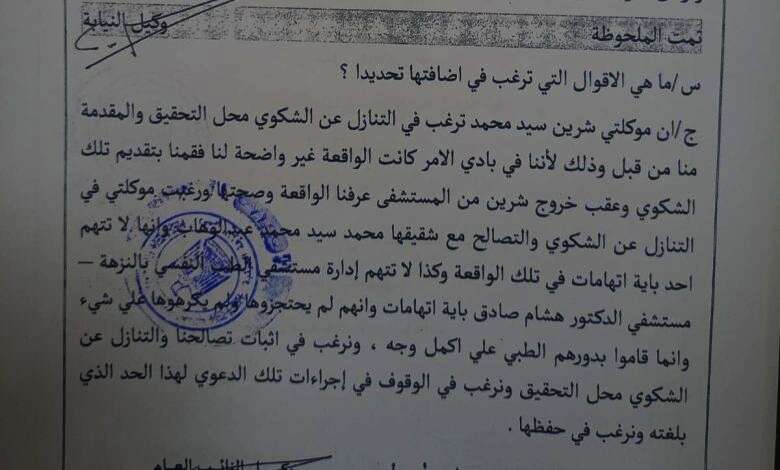 تمت الملحوظة وكيل النيابة
س/ما هي الاقوال التي ترغب في اضافتها تحديدا ؟
ج/ان موكلتي شرين سيد محمد ترغب في التنازل عن الشكوي محل التحقيق والمقدمة
منا من قبل وذلك لأننا في بادي الامر كانت الواقعة غير واضحة لنا فقمنا بتقديم تلك
الشكوي وعقب خروج شرين من المستشفى عرفنا الواقعة وصحتها ورغبت موكلتي في
التنازل عن الشكوي والتصالح مع شقيقها محمد سيد محمد عبدالوهاب وانها لا تتهم
احد باية اتهامات في تلك الواقعة وكذا لا تتهم إدارة مستشفي الطب النفسي بالنزهة –
مستشفي الدكتور هشام صادق باية اتهامات وانهم لم يحتجزوها ولم يكرهوها علي شيء
وانما قاموا بدورهم الطبي علي اكمل وجه ، ونرغب في اثبات تصالحنا والتنازل عن
الشكوي محل التحقيق ونرغب في الوقوف في إجراءات تلك الدعوي لهذا الحد الذي
بلغته ونرغب في حفظها .